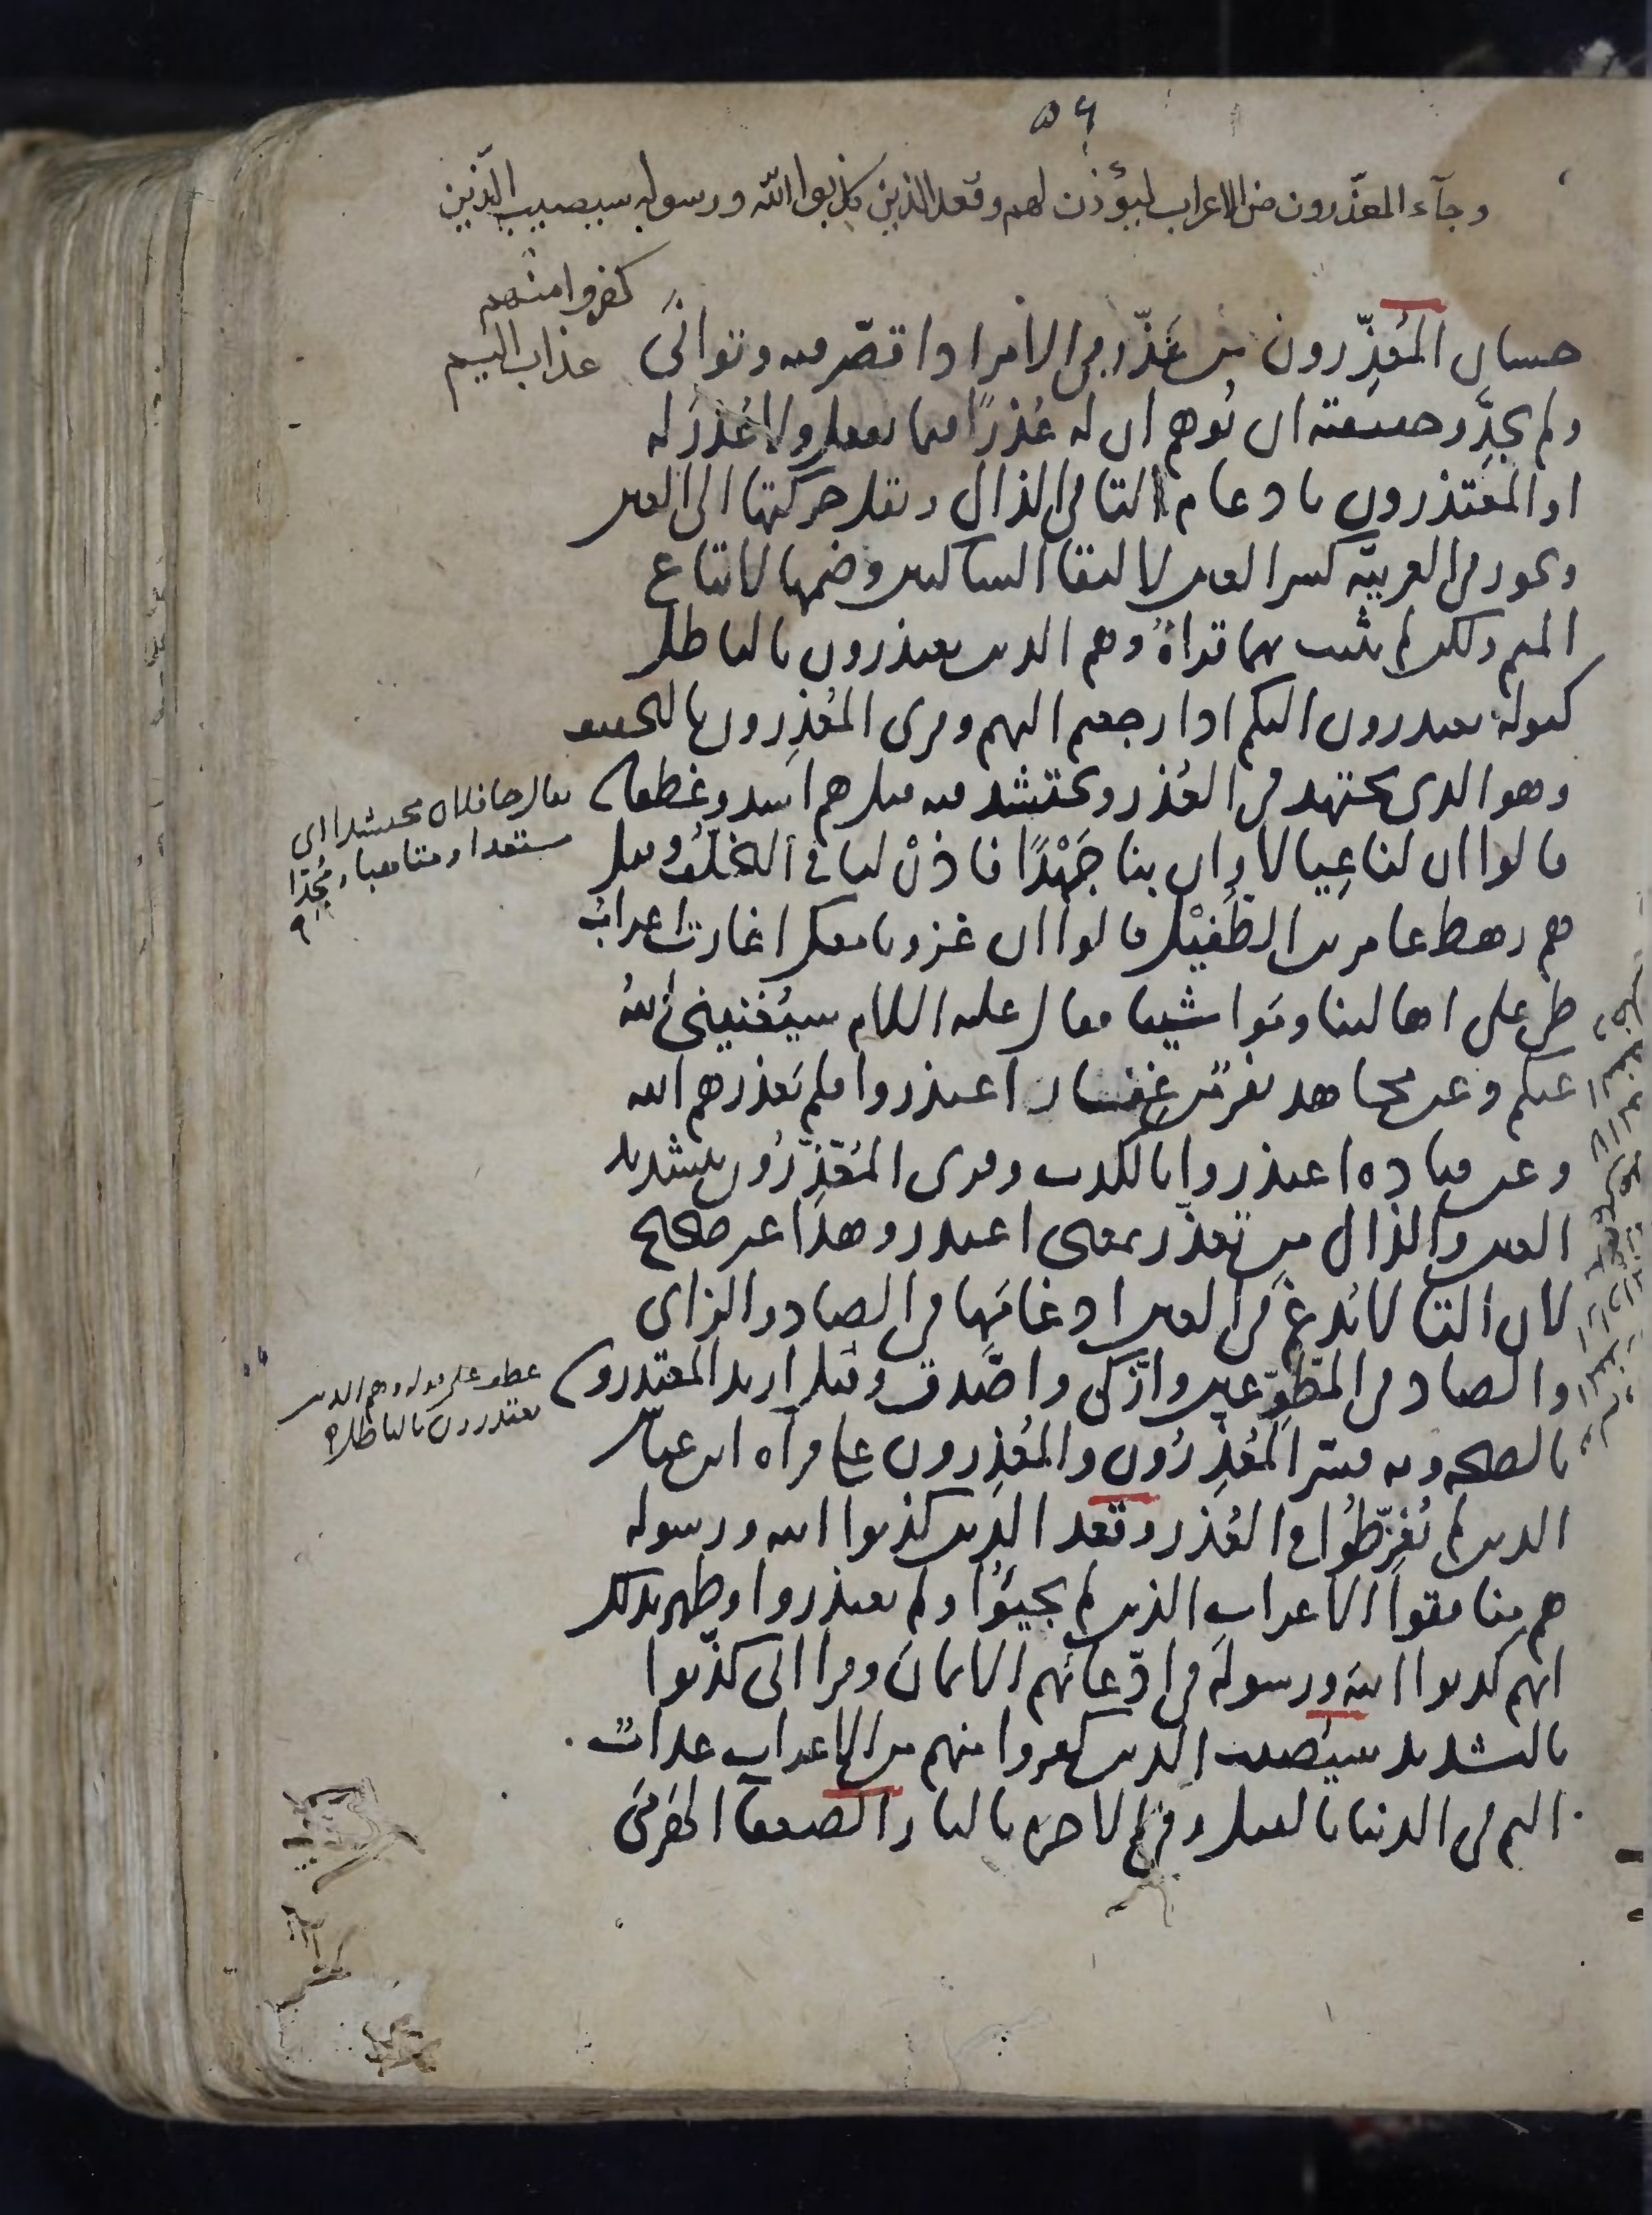 ٥٦
وجآء المعذّرون من الاعراب ليؤذن لهم وقعد الذين كذبوا الله ورسوله سيصيب الذين
كفروا منهم
عذاب اليم
حسان المُعذِّرون من عَذّر في الأمر اذا قصّر فيه وتوانَى
ولم يجِدَّ وحقيقته ان يُوهم ان له عُذرًا فيما يفعل ولا عُذرَ له
او المعتذرون بادغام التا في الذال ونقل حركتها الى العين
ويجوز في العربيّه كسر العين لالتقا الساكنين وضمها لاتباع
الميم ولكن لم يثبت بهما قراةٌ وهم الذين يعتذرون بالباطل
كقوله يعتذرون اليكم اذا رجعتم اليهم وقرى المُعْذِرون بالتخفيف
وهو الذى يجتهد في العُذر ويحتشد فيه قيل هم اسد وغطفان
قالوا ان لنا عِيالا وان بنا جَهْدًا فاذنْ لنا في التخلّف وقيل
هم رهط عامر بن الطُّفَيْل قالوا ان غزونا معك اغارت اعرابُ
طى على اهالينا ومواشينا فقال عليه السلام سيُغنينى اللهُ
عنكم وعن مجاهد نفر من غِفار اعتذروا فلم يَعذرهم الله
وعن قتاده اعتذروا بالكذب وقرى المُعّذِّرُون بتشديد
العين والذال من تعذّر بمعنى اعتذر وهذا غير صحيح
لان التا لا تُدغَم في العين ادغامَها في الصاد والزاى
والصاد في المطّوّعين وازّكى واصّدق وقيل اريد المعتذرون
بالصحه وبه فسّر المُعَذِّرُون والمُعْذِرون على قرآه ابن عباس
الذين لم يُفرِّطُوا في العُذر وقعد الذين كذبوا الله ورسوله
هم منافقوا الاعراب الذين لم يجيؤُا ولم يعتذروا وظهر بذلك
انهم كذبوا الله ورسوله في ادّعائهم الايمان وقرا ابى كذّبوا
بالتشديد سيُصيب الذين كفروا منهم من الاعراب عذابٌ
اليم في الدنيا بالقتل وفي الاخره بالنار الضعفا الهَرمَى
يقال جا فلان محتشدا اى
مستعدا ومتاهبا ومُجِدّا
عطف على قوله وهم الذين
يعتذرون بالباطل